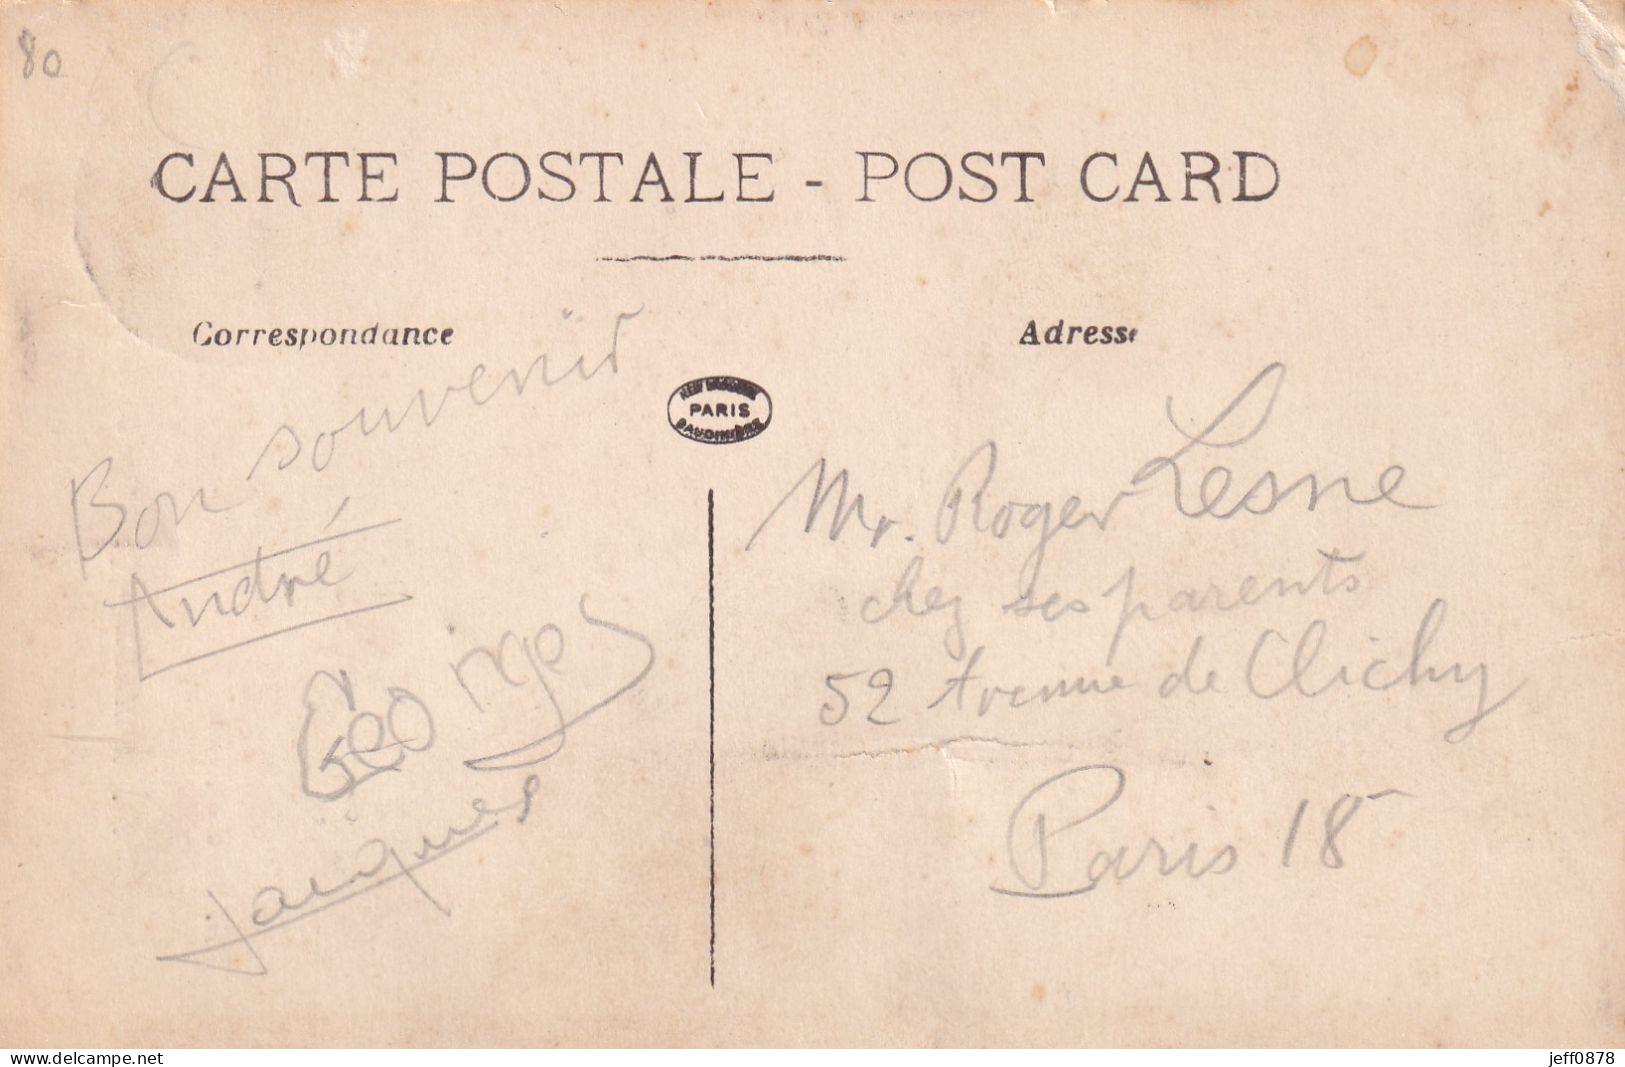 80
CARTE POSTALE - POST CARD
Correspondance
Adresse
PARIS
Bon souvenir
André
Georges
Jacques
Mr. Roger Lesne
chez ses parents
52 Avenue de Clichy
Paris 18
www.delcampe.net
jeff0878